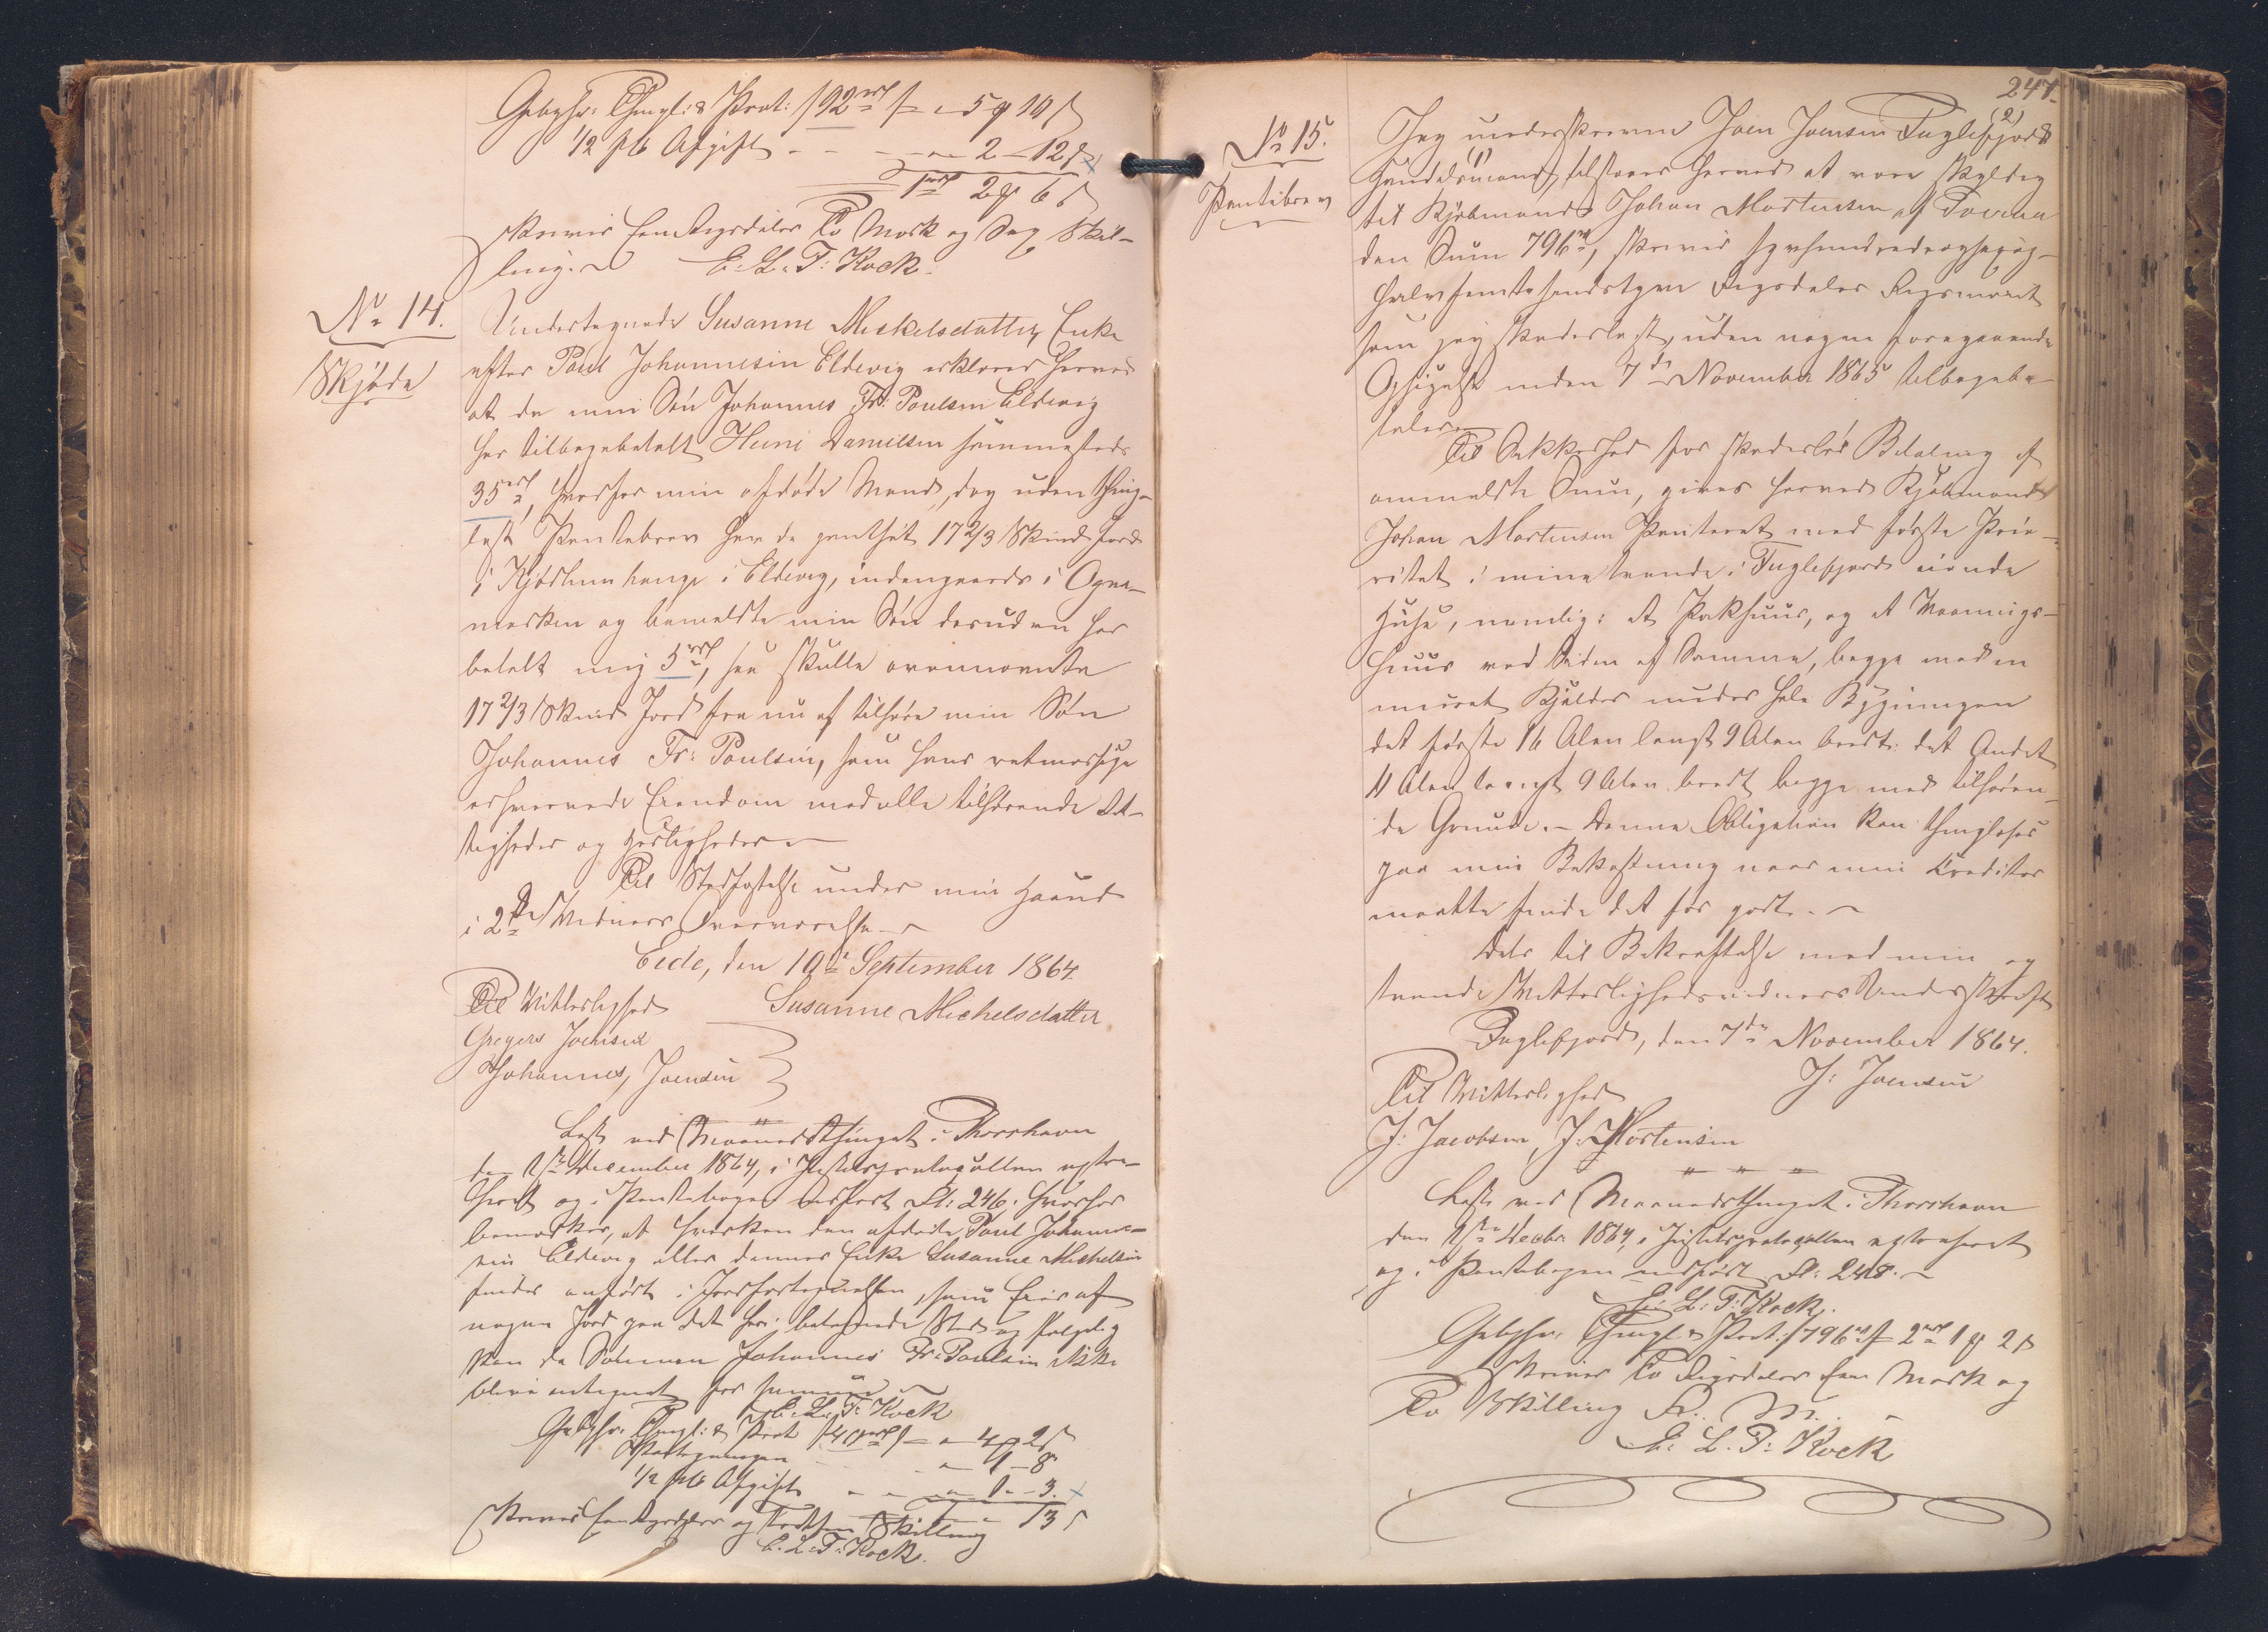 Gebyhr: Thingl: & Prot: /92 rd/ = " 5 ℳ 10 ß
1/2 pCt Afgift - - - - " 2 - 12 ß
1 rd 2 ℳ 6 ß
skriver Een Rigsdaler To Mark og Sex Skil-
ling. E. L. T: Kock.
No 14.
Skjøde
Undertegnede Susanne Mickelsdatter, Enke
efter Poul Johannesen Eldevig erklærer herved
at da min Søn Johannes Fr: Poulsen Eldevig
har tilbagebetalt Heini Danielsen sammesteds
35 rd, hvorfor min afdøde Mand, dog uden thing-
læst Pantebrev har de pantsat 17 2/3 Skind Jord
i Kjødlum hauge i Eldevig, indengaards i Ogna-
marken og bemeldte min Søn desuden har
betalt mig 5 rd, saa skulle ovennævnte
17 2/3 Skind Jord fra nu af tilhøre min Søn
Johannes Fr: Poulsen, som hans retmæssige
erhvervede Eiendom med alle tilhørende Ret-
tigheder og Herligheder
Til Stadfæstelse under min Haand
i 2de Vidners Overværelse
Eide, den 10de September 1864.
Til Vitterlighed Susanne Michelsdatter
Gregers Joensen
Johannes Joensen
"
Læst ved Maanedsthinget i Thorshavn
den 1ste December 1864, i Justitsprotocollen extra-
heret og i Pantebogen indført Fl: 246. Hvorhos
bemærkes, at hverken den afdøde Poul Johanne-
sen Eldevig eller dennes Enke Susanne Michelsen
findes anført i Jordfortegnelsen, som Eier af
nogen Jord paa det her betegnede Sted og følgelig
kan da Sønnen Johannes Fr: Poulsen ikke
blive antegnet for samme
E. L. T: Kock
Gebyhr: Thingl: & Prot /40 rd/ = " 4 ℳ 2 ß
Paategningen - - " 1 - 8
1/2 pCt Afgift - - " 1 - 3.
Skriver Een Rigsdaler og Tretten Skilling 1 " 13 ß
E. L. T: Kock.
247.
No 15.
Pantebrev
Jeg underskrevne Joen Joensen Fuglefjord (2)
Handelsmand, (1) tilstaaer herved at være skyldig
til Kjøbmand Johan Mortensen af Tveraa
den Sum 796 rd, skriver Syvhundredeogsexog-
halvfemtesindstyve Rigsdaler Rigsmønt
som jeg skadesløst, uden nogen foregaaende
Opsigelse inden 7de November 1865 tilbagebe-
taler
Til Sikkerhed for skadesløs Betaling af
anmeldte Sum, gives herved Kjøbmand
Johan Mortensen Panteret med første Prio-
ritet i mine tvende i Fuglefjord eiende
Huse, nemlig: et Pakhuus, og et Vaanings-
huus ved Siden af Samme, begge med en
muret Kjelder under hele Bygningen
det første 16 Alen langt 9 Alen bredt: det Andet
11 Alen langt 9 Alen bredt begge med tilhøren-
de Grunde. - Denne Obligation kan thinglæses
paa min Bekostning naar min Creditor
maatte finde det for godt. -
Dets til Bekræftelse med min og
tvende Vitterlighedsvidners Underskrift
Fuglefjord, den 7de November 1864.
J: Joensen
Til Vitterlighed
J: Jacobsen, J: Mortensen
" " "
Læst ved Maanedsthinget i Thorshavn
den 1ste Decbr 1864, i Justitsprotocollen extraheret
og i Pantebogen indført Fl: 248.
E: L: T: Kock.
Gebyhr: Thingl & Prot: /796 rd/ = 2 rd 1 ℳ 2 ß
skriver To Rigsdaler Een Mark og
To Skilling R. M.
E: L. T: Kock